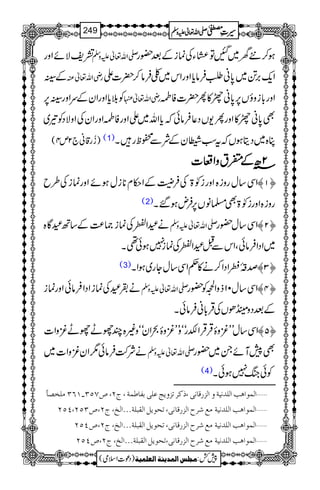 سیرتِ مصطفی صلی اللہ تعالیٰ علیہ وسلم 249
ہوکر نئے گھر میں گئیں تو عشاء کی نماز کے بعد حضور صلی اللہ تعالیٰ علیہ وسلم تشریف لائے اور
ایک برتن میں پانی طلب فرمایا اور اس میں کلی فرما کر حضرت علی رضی اللہ تعالیٰ عنہ کے سینہ
اور بازوؤں پر پانی چھڑکا پھر حضرت فاطمہ رضی اللہ تعالیٰ عنہا کو بلایا اور ان کے سر اور سینہ پر
بھی پانی چھڑکا اور پھر یوں دعا فرمائی کہ یا اللہ میں علی اور فاطمہ اور ان کی اولاد کو تیری
پناہ میں دیتا ہوں کہ یہ سب شیطان کے شر سے محفوظ رہیں۔ (1) (زرقانی ج۲ ص۴)
۲ھ کے متفرق واقعات
﴿۱﴾ اسی سال روزہ اور زکوٰۃ کی فرضیت کے احکام نازل ہوئے اور نماز کی طرح
روزہ اور زکوٰۃ بھی مسلمانوں پر فرض ہوگئے۔ (2)
﴿۲﴾ اسی سال حضور صلی اللہ تعالیٰ علیہ وسلم نے عید الفطر کی نماز جماعت کے ساتھ عید گاہ
میں ادا فرمائی، اس سے قبل عید الفطر کی نماز نہیں ہوئی تھی۔
﴿۳﴾ صدقۂ فطر ادا کرنے کا حکم اسی سال جاری ہوا۔ (3)
﴿۴﴾ اسی سال ۱۰ ذوالحجہ کو حضور صلی اللہ تعالیٰ علیہ وسلم نے بقر عید کی نماز ادا فرمائی اور نماز
کے بعد دو مینڈھوں کی قربانی فرمائی۔
﴿۵﴾ اسی سال ’’غزوۂ قرقر الکدر‘‘ و ’’غزوۂ بحران‘‘ وغیرہ چند چھوٹے چھوٹے غزوات
بھی پیش آئے جن میں حضور صلی اللہ تعالیٰ علیہ وسلم نے شرکت فرمائی مگر ان غزوات میں
کوئی جنگ نہیں ہوئی۔ (4)
المواهب اللدنية و الزرقانی، ذكر تزويج علی بفاطمة، ج٢، ص٣٥٧ـ٣٦١ ملخصاً
المواهب اللدنية مع شرح الزرقانی، تحويل القبلة...الخ، ج٢، ص٢٥٣، ٢٥٤
المواهب اللدنية مع شرح الزرقانی، تحويل القبلة...الخ، ج٢، ص٢٥٤
المواهب اللدنية مع شرح الزرقانی، تحويل القبلة...الخ، ج٢، ص٢٥٤
پیش کش: مجلس المدینة العلمیة (دعوتِ اسلامی)